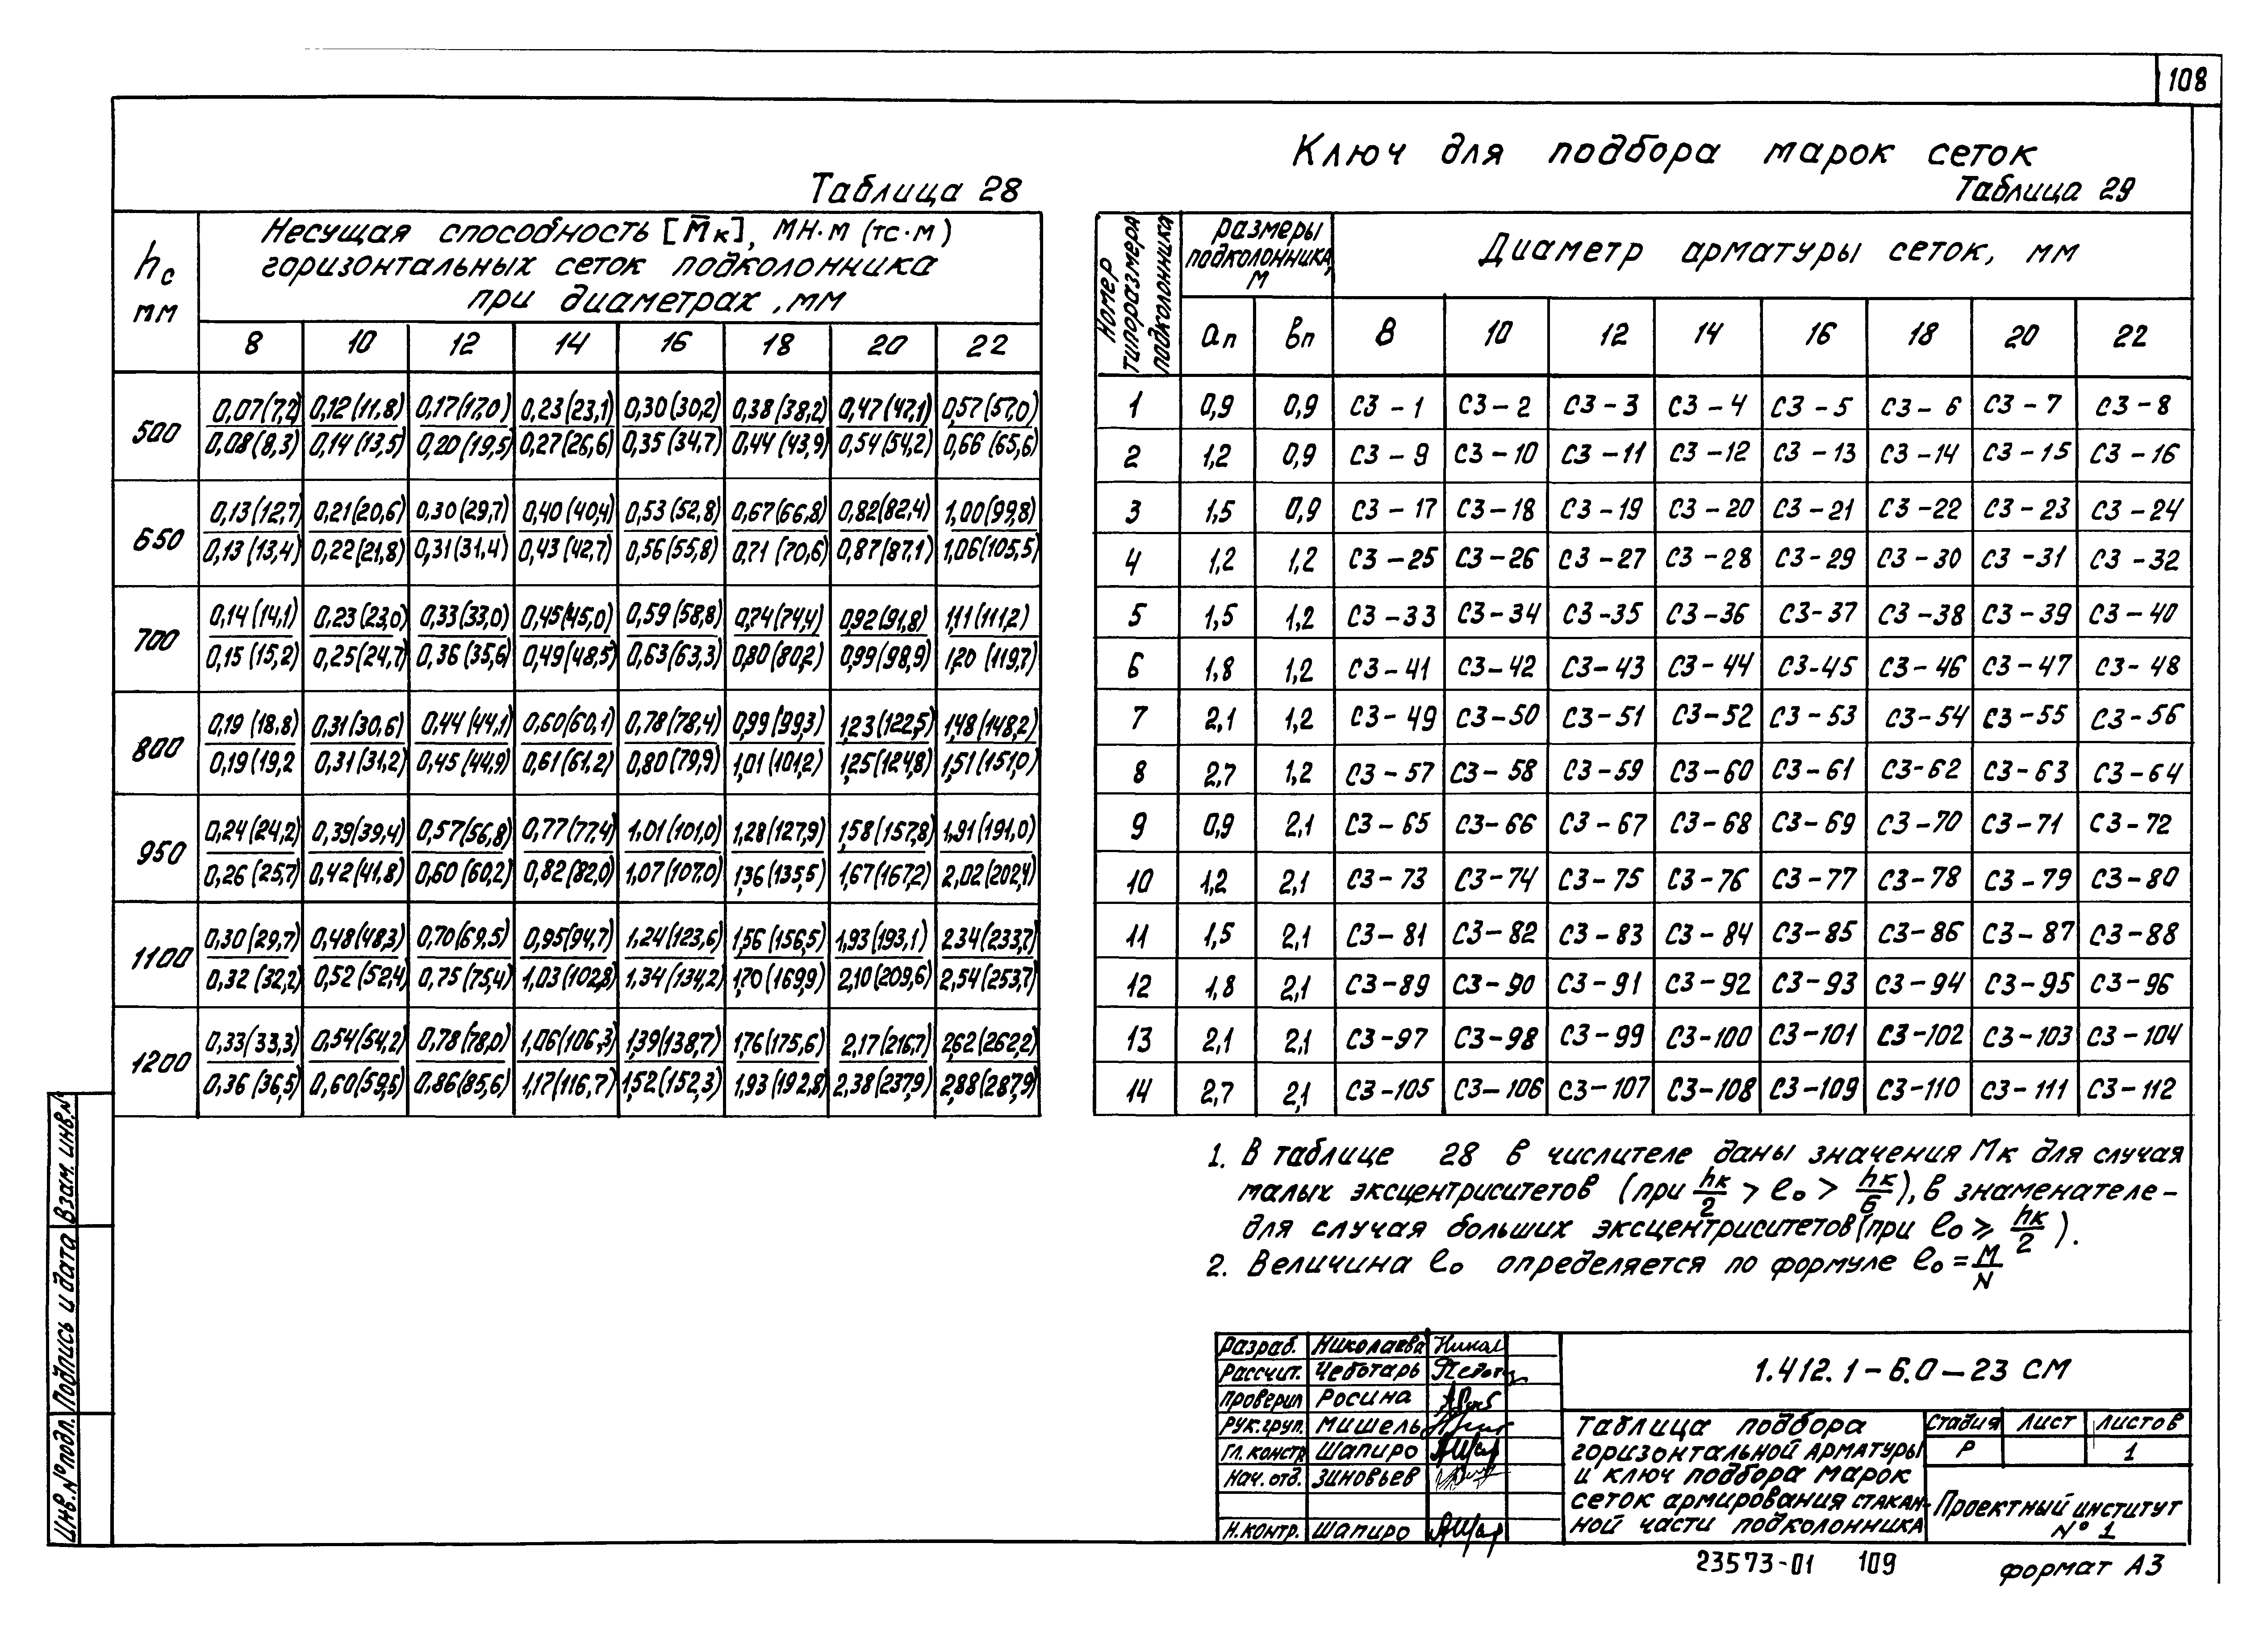 108
Ключ для подбора марок сеток
Таблица 28
Таблица 29
hс мм
Несущая способность [M̄к], МН·м (тс·м)
горизонтальных сеток подколонника
при диаметрах, мм
8 10 12 14 16 18 20 22
500
0,07(7,2) 0,12(11,8) 0,17(17,0) 0,23(23,1) 0,30(30,2) 0,38(38,2) 0,47(47,1) 0,57(57,0)
0,08(8,3) 0,14(13,5) 0,20(19,5) 0,27(26,6) 0,35(34,7) 0,44(43,9) 0,54(54,2) 0,66(65,6)
650
0,13(12,7) 0,21(20,6) 0,30(29,7) 0,40(40,4) 0,53(52,8) 0,67(66,8) 0,82(82,4) 1,00(99,8)
0,13(13,4) 0,22(21,8) 0,31(31,4) 0,43(42,7) 0,56(55,8) 0,71(70,6) 0,87(87,1) 1,06(105,5)
700
0,14(14,1) 0,23(23,0) 0,33(33,0) 0,45(45,0) 0,59(58,8) 0,74(74,4) 0,92(91,8) 1,11(111,2)
0,15(15,2) 0,25(24,7) 0,36(35,6) 0,49(48,5) 0,63(63,3) 0,80(80,2) 0,99(98,9) 1,20(119,7)
800
0,19(18,8) 0,31(30,6) 0,44(44,1) 0,60(60,1) 0,78(78,4) 0,99(99,3) 1,23(122,5) 1,48(148,2)
0,19(19,2 0,31(31,2) 0,45(44,9) 0,61(61,2) 0,80(79,9) 1,01(101,2) 1,25(124,8) 1,51(151,0)
950
0,24(24,2) 0,39(39,4) 0,57(56,8) 0,77(77,4) 1,01(101,0) 1,28(127,9) 1,58(157,8) 1,91(191,0)
0,26(25,7) 0,42(41,8) 0,60(60,2) 0,82(82,0) 1,07(107,0) 1,36(135,5) 1,67(167,2) 2,02(202,4)
1100
0,30(29,7) 0,48(48,3) 0,70(69,5) 0,95(94,7) 1,24(123,6) 1,56(156,5) 1,93(193,1) 2,34(233,7)
0,32(32,2) 0,52(52,4) 0,75(75,4) 1,03(102,8) 1,34(134,2) 1,70(169,9) 2,10(209,6) 2,54(253,7)
1200
0,33(33,3) 0,54(54,2) 0,78(78,0) 1,06(106,3) 1,39(138,7) 1,76(175,6) 2,17(216,7) 2,62(262,2)
0,36(36,5) 0,60(59,6) 0,86(85,6) 1,17(116,7) 1,52(152,3) 1,93(192,8) 2,38(237,9) 2,88(287,9)
Номер типоразмера подколонника
размеры подколонника, м
Диаметр арматуры сеток, мм
aп вп 8 10 12 14 16 18 20 22
1 0,9 0,9 С3-1 С3-2 С3-3 С3-4 С3-5 С3-6 С3-7 С3-8
2 1,2 0,9 С3-9 С3-10 С3-11 С3-12 С3-13 С3-14 С3-15 С3-16
3 1,5 0,9 С3-17 С3-18 С3-19 С3-20 С3-21 С3-22 С3-23 С3-24
4 1,2 1,2 С3-25 С3-26 С3-27 С3-28 С3-29 С3-30 С3-31 С3-32
5 1,5 1,2 С3-33 С3-34 С3-35 С3-36 С3-37 С3-38 С3-39 С3-40
6 1,8 1,2 С3-41 С3-42 С3-43 С3-44 С3-45 С3-46 С3-47 С3-48
7 2,1 1,2 С3-49 С3-50 С3-51 С3-52 С3-53 С3-54 С3-55 С3-56
8 2,7 1,2 С3-57 С3-58 С3-59 С3-60 С3-61 С3-62 С3-63 С3-64
9 0,9 2,1 С3-65 С3-66 С3-67 С3-68 С3-69 С3-70 С3-71 С3-72
10 1,2 2,1 С3-73 С3-74 С3-75 С3-76 С3-77 С3-78 С3-79 С3-80
11 1,5 2,1 С3-81 С3-82 С3-83 С3-84 С3-85 С3-86 С3-87 С3-88
12 1,8 2,1 С3-89 С3-90 С3-91 С3-92 С3-93 С3-94 С3-95 С3-96
13 2,1 2,1 С3-97 С3-98 С3-99 С3-100 С3-101 С3-102 С3-103 С3-104
14 2,7 2,1 С3-105 С3-106 С3-107 С3-108 С3-109 С3-110 С3-111 С3-112
1. В таблице 28 в числителе даны значения Мк для случая
малых эксцентриситетов (при hк/2 > e₀ > hк/6), в знаменателе-
для случая больших эксцентриситетов (при e₀ ⩾ hк/2).
2. Величина e₀ определяется по формуле e₀ = M/N
Разраб. Николаева
Рассчит. Чеботарь
Проверил Росина
Рук.груп. Мишель
Гл. констр Шапиро
Нач. отд. Зиновьев
Н.контр. Шапиро
1.412.1-6.0-23 СМ
Таблица подбора
горизонтальной арматуры
и ключ подбора марок
сеток армирования стакан-
ной части подколонника
Стадия Лист Листов
Р 1
Проектный институт
№ 1
Инв. № подл. Подпись и дата Взам. инв. №
23573-01 109
формат А3